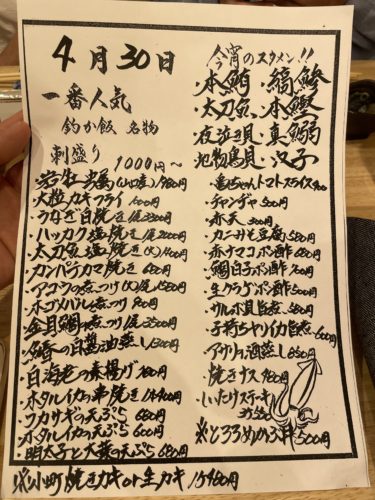 4月30日
一番人気
釣か飯 名物
刺盛り 1000円〜
岩牡蠣(山口産)980円
大粒カキフライ 600円
うなぎ白焼き1尾
ハッカク塩焼1尾2000円
太刀魚塩焼(大)1400円
カンパチカマ焼き 680円
アコウの煮つけ(大)1580円
本ゴメバル煮つけ
金目鯛の煮つけ1尾3500円
白醤油蒸し1300円
白海老の素揚げ 780円
ホタルイカの串焼き
ワカサギの天ぷら 680円
ホタルイカの天ぷら 680円
明太子と大葉の天ぷら 680円
※小町 焼きカキor生カキ 1ケ480円
今宵のスタメン!!
・本鮪・縞鯵
・太刀魚・本鰹
・夜泣き貝・真鰯
・地物鳥貝・汐子
・亀ちゃんトマトスライス400
・チャンヂャ 500円
・赤天 300円
・カニみそ豆腐 580円
・赤ナマコポン酢 680円
・鯛白子ポン酢 780円
・生クラゲポン酢 500円
・サルボ貝旨煮 580円
・子持ちヤリイカ旨煮 600円
・アサリ酒蒸し 850円
・焼きナス 480円
・しいたけステーキ
※とろろめかぶ丼500円